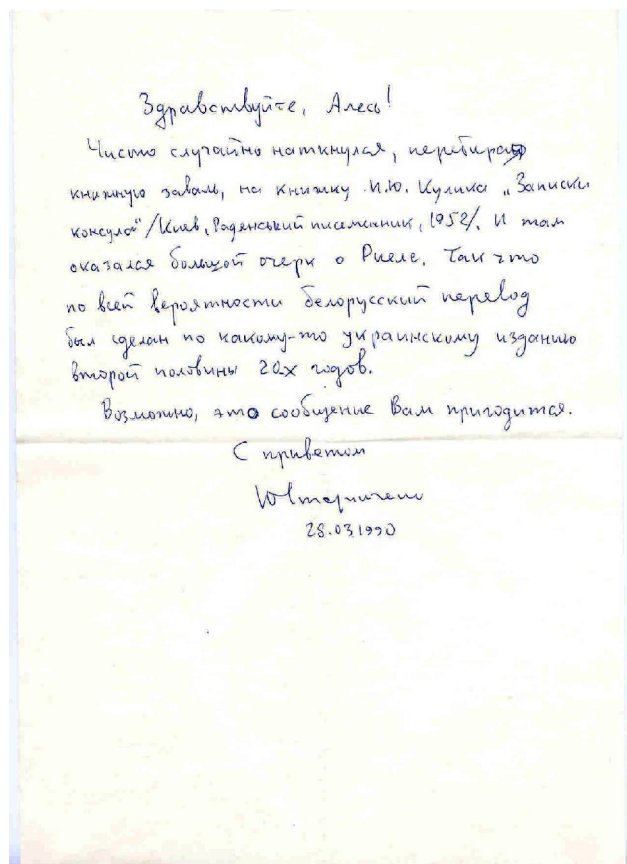 Здравствуйте, Алесь!
Чисто случайно наткнулся, перебирая
книжную заваль, на книжку И.Ю. Кулика „Записки
консула" /Киев, Радянський письменник, 1952/. И там
оказался большой очерк о Риеле. Так что
по всей вероятности белорусский перевод
был сделан по какому-то украинскому изданию
второй половины 20х годов.
Возможно, это сообщение Вам пригодится.
С приветом
28.03.1990